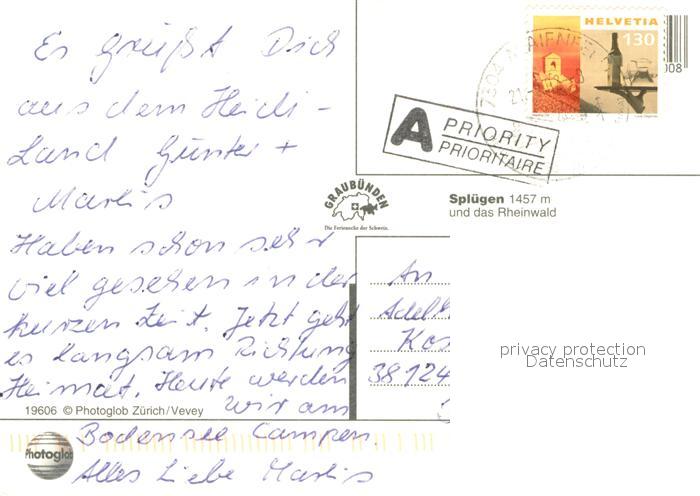 Es grüßt Dich
aus dem Heidi-
Land Günter +
Marlis
Haben schon sehr
viel gesehen in der
kurzen Zeit. Jetzt geht
es langsam Richtung
Heimat. Heute werden
wir am
Bodensee Campen.
Alles Liebe Marlis
19606 © Photoglob Zürich/Vevey
Photoglob
HELVETIA
130
008
A PRIORITY
PRIORITAIRE
GRAUBÜNDEN
Die Ferienecke der Schweiz.
Splügen 1457 m
und das Rheinwald
An
38124
privacy protection
Datenschutz